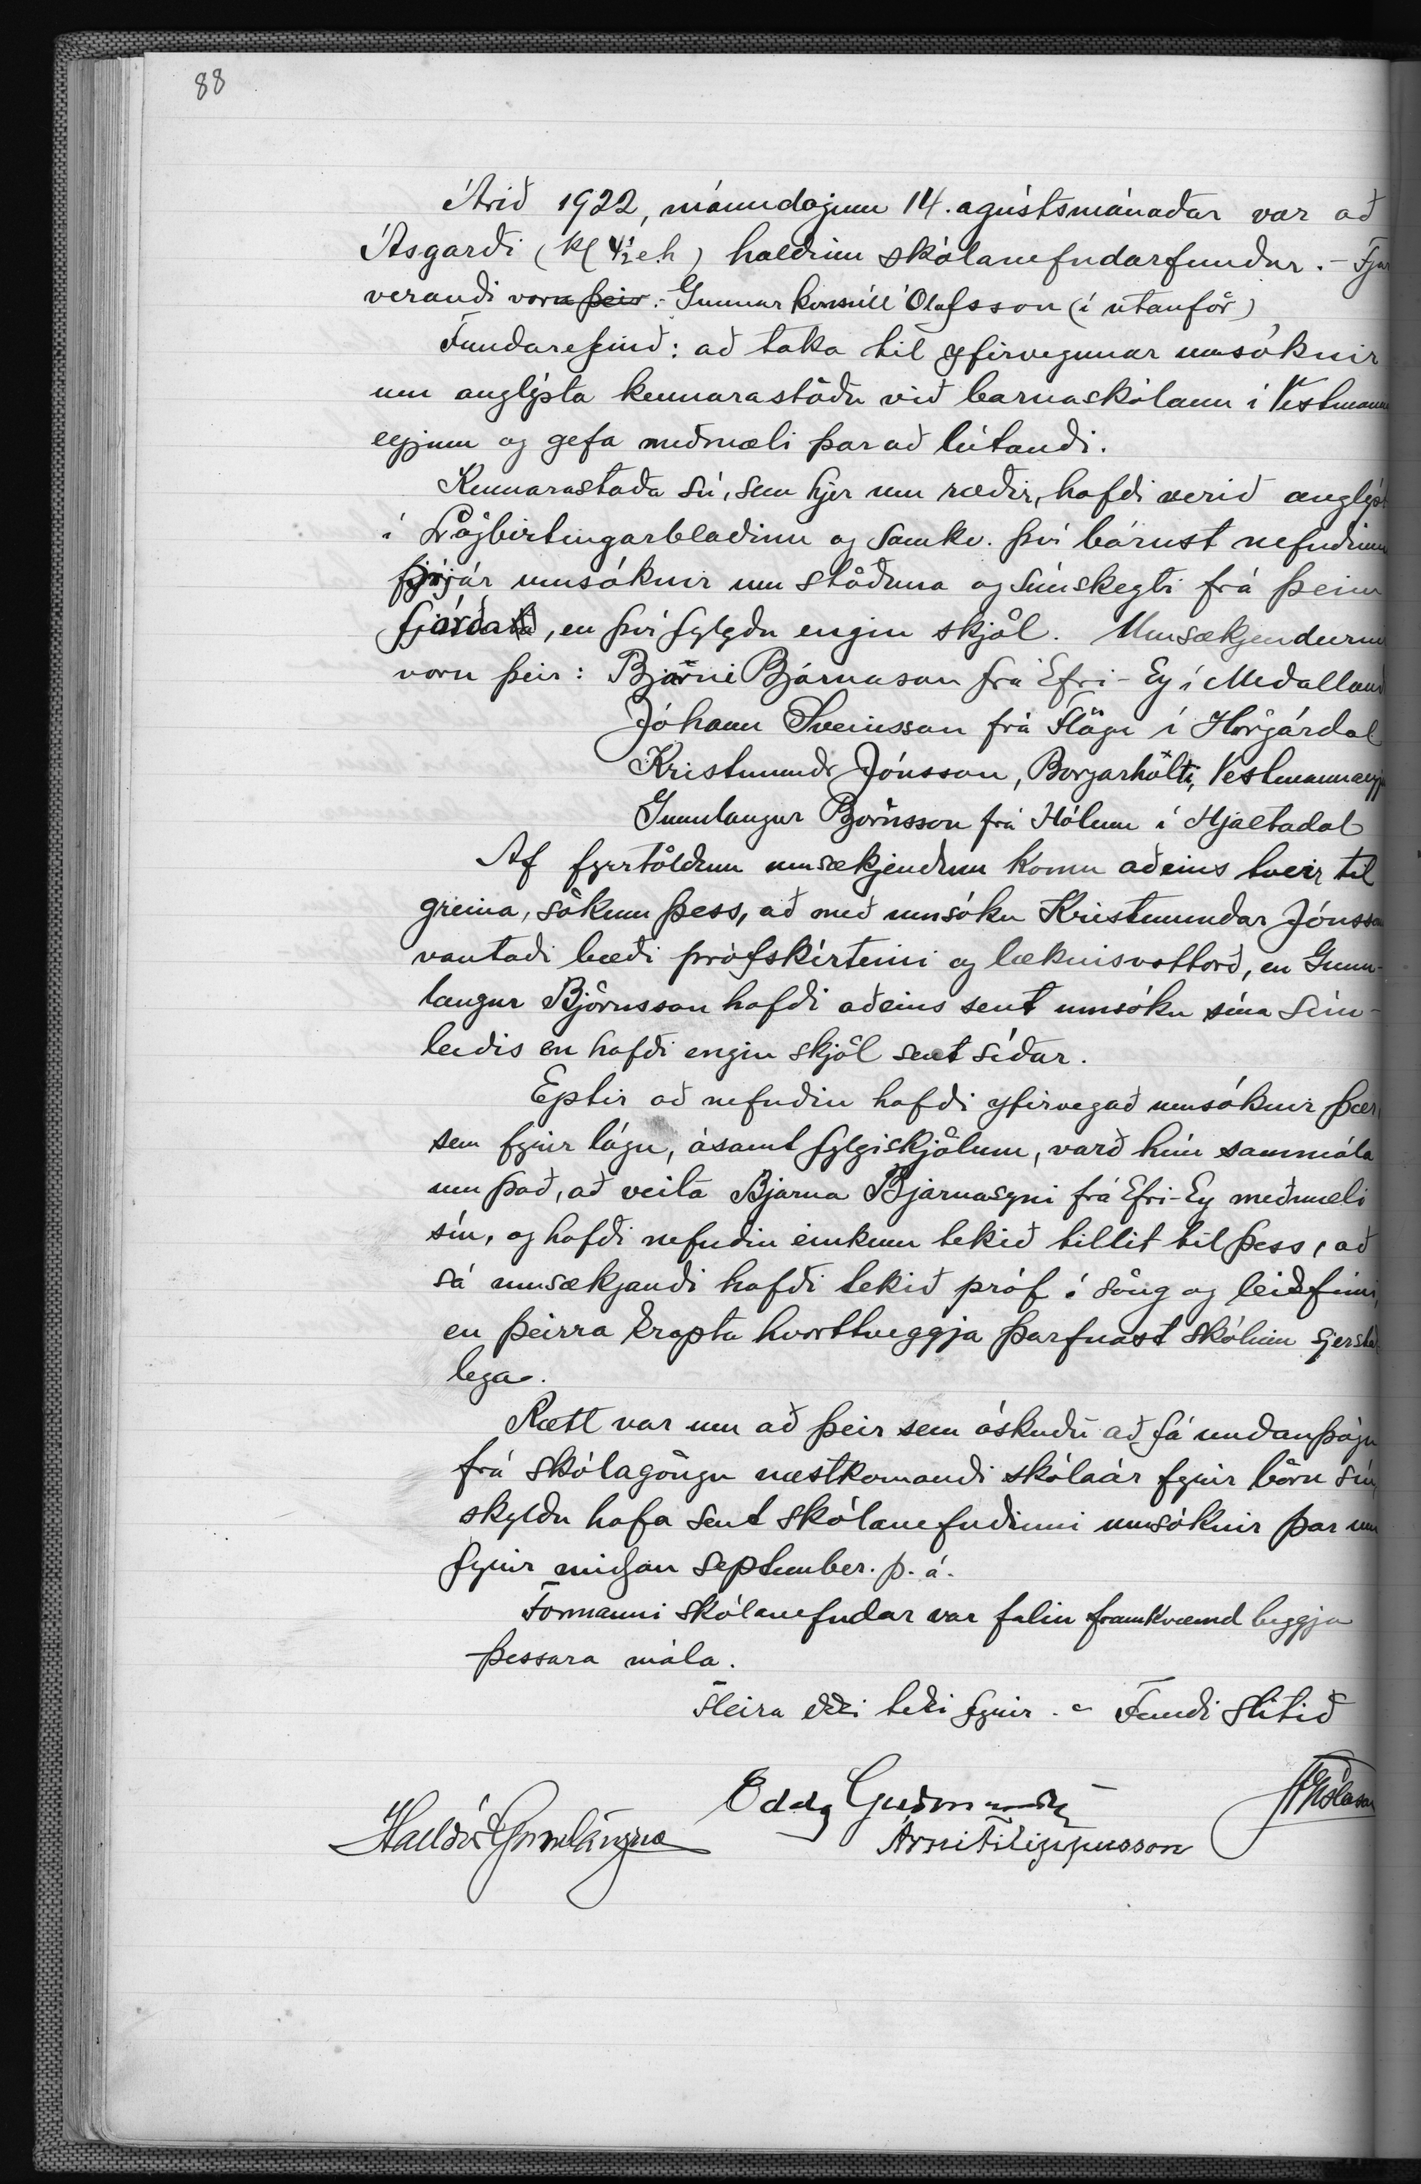 88
Árið 1922, mánudaginn 14. agústsmánaðar var að
Ásgarði (kl 4½ e.h) haldinn skólanefndarfundur. - Fjar
verandi voru þeir.- Gunnar konsúll Ólafsson (í utanför)
Fundarefnið: að taka til yfirvegunar umsóknir
um auglýsta kennarastöðu við barnaskólann í Vestmanna
eyjum og gefa meðmæli þar að lútandi.
Kennarastaða sú, sem hjer um ræðir, hafði verið auglýst
í Lögbirtingarblaðinu og samkv. því bárust nefndinni
þrjár umsóknir um stöðuna og símskeyti frá þeim
fjórða, en því fylgdu engin skjöl. Umsækjendurnir
voru þeir: Bjarni Bjarnason frá Efri-Ey í Meðalland
Jóhann Sveinsson frá Flögu í Hörgárdal
Kristmundr Jónsson, Borgarhól, Vestmannaeyj
Gunnlaugur Björnsson frá Hólum í Hjaltadal
Af fyrrtöldum umsækjendum komu aðeins tveir til
greina, sökum þess, að með umsókn Kristmundar Jónsson
vantaði bæði prófskírteini og læknisvottorð, en Gunn-
laugur Björnsson hafði aðeins sent umsókn sína sím-
leiðis en hafði engin skjöl sent síðar.
Eptir að nefndin hafði yfirvegað umsóknir þær,
sem fyrir lágu, ásamt fylgiskjölum, varð hún sammála
um það, að veita Bjarna Bjarnasyni frá Efri-Ey meðmæli
sín, og hafði nefndin einkum tekið tillit til þess, að
sá umsækjandi hafði tekið próf í söng og leikfimi,
en þeirra krapta hvorttveggja þarfnast skólinn sjerstak
lega.
Rætt var um að þeir sem óskuðu að fá undanþágu
frá skólagöngu næstkomandi skólaár fyrir börn sín,
skyldu hafa sent skólanefndinni umsóknir þar um
fyrir miðjan september. þ. á.
Formanni skólanefndar var falin framkvæmd beggja
þessara mála.
Fleira ekki tekið fyrir. - Fundi slitið
Halldór Gunnlaugsson
Oddg Guðmundsson
Árni Filippusson